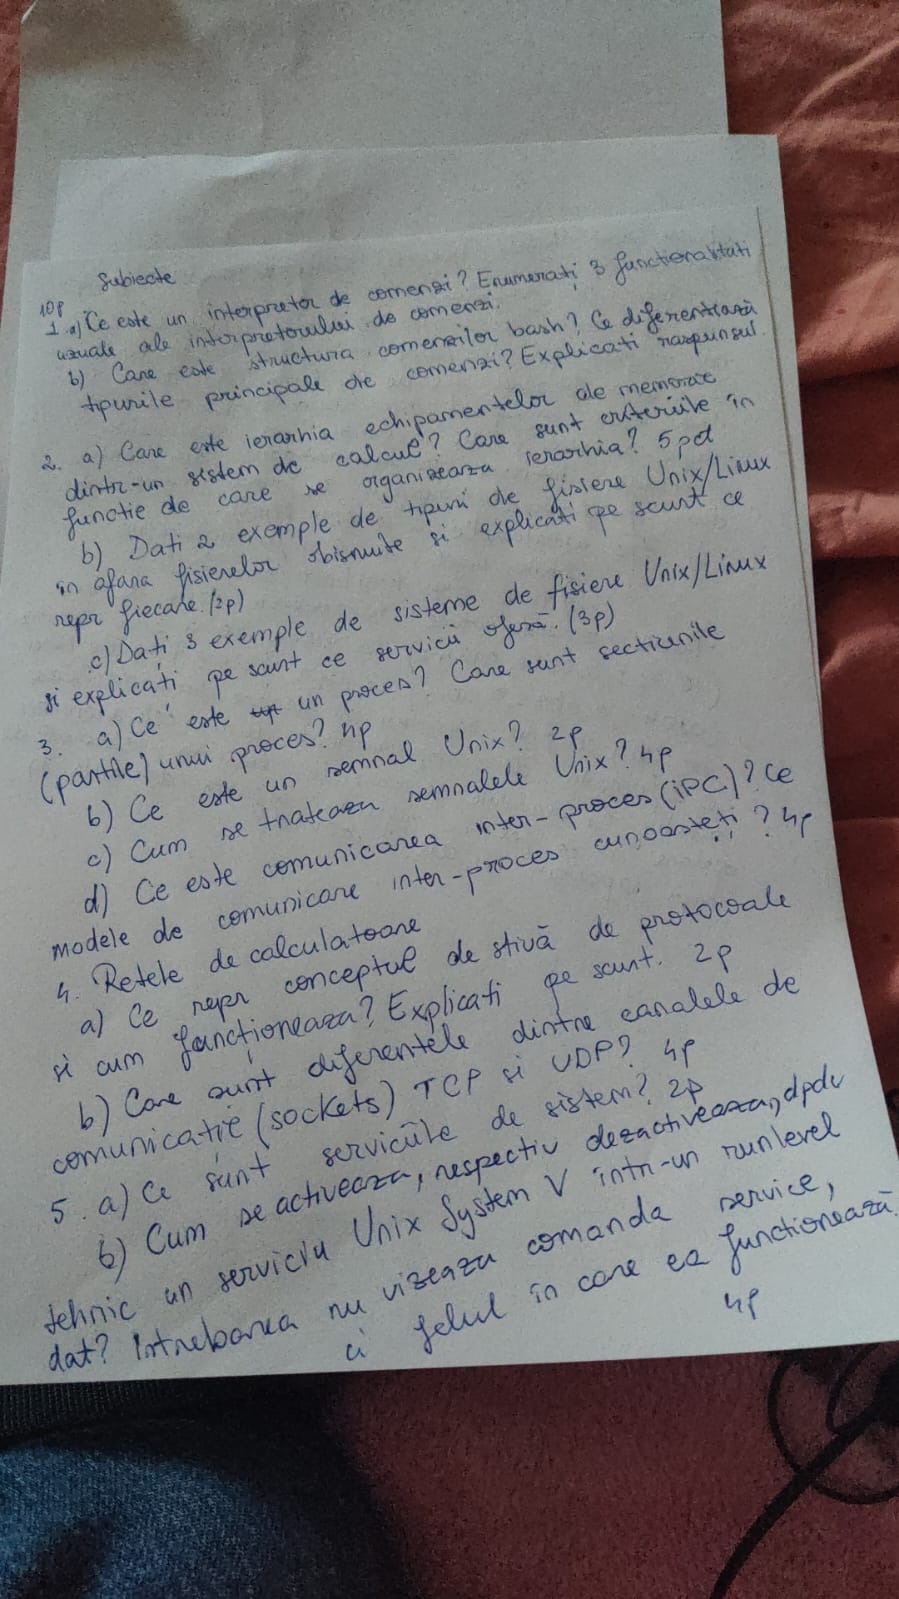 Subiecte
10p
1. a) Ce este un interpretor de comenzi? Enumerați 3 functionalitati
uzuale ale interpretorului de comenzi.
b) Care este structura comenzilor bash? Ce diferentiază
tipurile principale de comenzi? Explicati raspunsul.
2. a) Care este ierarhia echipamentelor de memorie
dintr-un sistem de calcul? Care sunt criteriile în
functie de care se organizeaza ierarhia? 5pct
b) Dati 2 exemple de tipuri de fisiere Unix/Linux
în afara fisierelor obisnuite si explicati pe scurt ce
repr fiecare. (2p)
c) Dați 3 exemple de sisteme de fisiere Unix/Linux
si explicați pe scurt ce servicii oferă. (3p)
3. a) Ce este un proces? Care sunt sectiunile
(partile) unui proces? 4p
b) Ce este un semnal Unix? 2p
c) Cum se trateaza semnalele Unix? 4p
d) Ce este comunicarea inter-proces (iPC)? Ce
modele de comunicare inter-proces cunoasteți? 4p
4. Retele de calculatoare
a) Ce repr conceptul de stivă de protocoale
si cum funcționeaza? Explicati pe scurt. 2p
b) Care sunt diferentele dintre canalele de
comunicație (sockets) TCP si UDP? 4p
5. a) Ce sunt serviciile de sistem? 2p
b) Cum se activeaza, respectiv dezactiveaza, dpdv
tehnic un serviciu Unix System V într-un runlevel
dat? Intrebarea nu vizeaza comanda service,
ci felul în care ea functionează.
4p